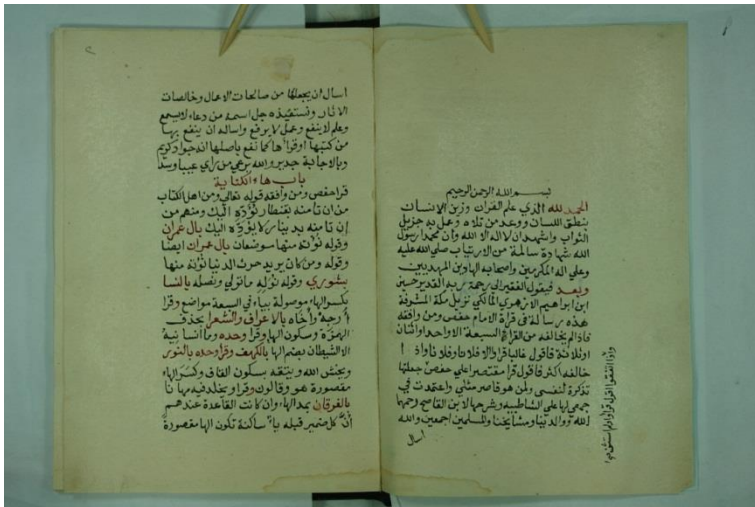 بسم الله الرحمن الرحيم
الحمد لله الذي علم القران وزين الانسان
بنطق اللسان ووعد من تلاه وعمل به جزيل
الثواب واشهد ان لا اله الا الله وان محمدا رسول
الله شهادة سالمة من الارتياب صلي الله عليه
وعلي اله المكرمين واصحابه الهادين المهديين
وبعد فيقول الفقير الي رحمة ربه القدير حسين
ابن ابراهيم الازهري المالكي نزيل مكة المشرفة
هذه رسالة في قراة الامام حفص ومن وافقه
فاذا لم يخالفه من القراة السبعة الا واحد او اثنان
او ثلاثة فاقول غالبا قرا والا فلان او فلان واذا
خالفه اكثر فاقول قرا مقتصرا علي حفص جعلتها
تذكرة لنفسي ولمن هو قاصر مثلي واعتمدت في
جمعي لها علي الشاطبية وشرحها لابن القاصح رحمها
الله ووالدينا ومشايخنا والمسلمين اجمعين والله
اسال
اسال ان يجعلها من صالحات الاعمال وخالصات
الاثار ونستعيذه جل اسمه من دعاء لا يسمع
وعلم لا ينفع وعمل لا يرفع واساله ان ينفع بها
من كتبها او قراها كما نفع باصلها انه جواد كريم
وبالاجابة جدير والله يرعي من راي عيبا وسد
باب هاء الكناية
قرا حفص ومن وافقه قوله تعالي ومن اهل الكتاب
من ان تامنه بقنطار يؤده اليك ومنهم من
ان تامنه بدينار لا يؤده اليك بال عمران
وقوله نؤته منها وسنشعان بال عمران ايضا
وقوله ومن كان يريد حرث الدنيا نؤته منها
بشوري وقوله نوله ما تولي ونصله بالنسا
بكسر الهاء موصولة بياء في السبعة مواضع وقرا
ارجه واخاه بالاعراف والشعرا بحذف
الهمزة وسكون الها وقرا وحده وما انسانيه
الا الشيطان بضم الها بالكهف وقرا وحده بالنور
ويخش الله ويتقه بسكون القاف وكسر الهاء
مقصورة هو وقالون وقرا ويخلد فيه مهانا
بالفرقان بمد الهاء وان كانت القاعدة عندهم
ان كل ضمير قبله ياء ساكنة تكون الها مقصورة